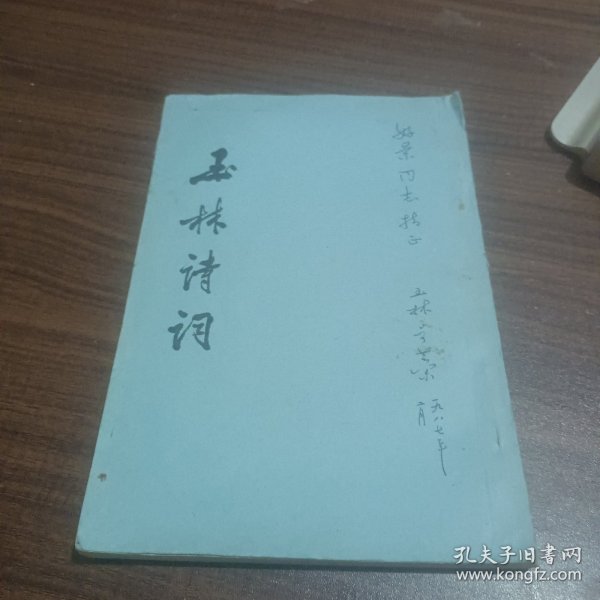 玉林诗词
好景同志指正
玉林
一九八七年
二月
孔夫子旧书网
www.kongfz.com